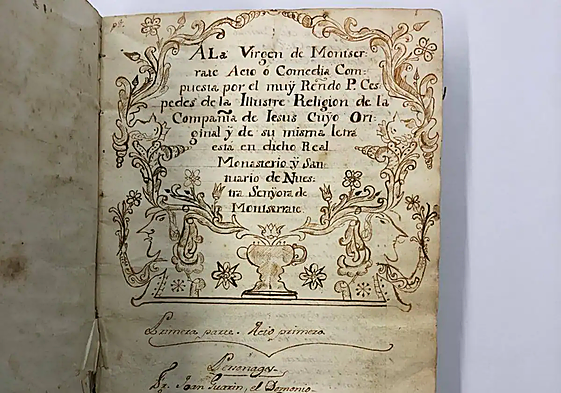 A La Virgen de Montser-
rate Acto ó Comedia Com-
puesta por el muÿ Rendo P. Ces-
pedes de la Illustre Religion de la
Compañia de Iesus Cuÿo Ori-
ginal ÿ de su misma letra
está en dicho Real
Monasterio ÿ San-
tuario de Nues-
tra Senÿora de
Montserrate.
Primera parte. Acto primero.
Personages.
Fr. Joan Guarin, el Demonio.